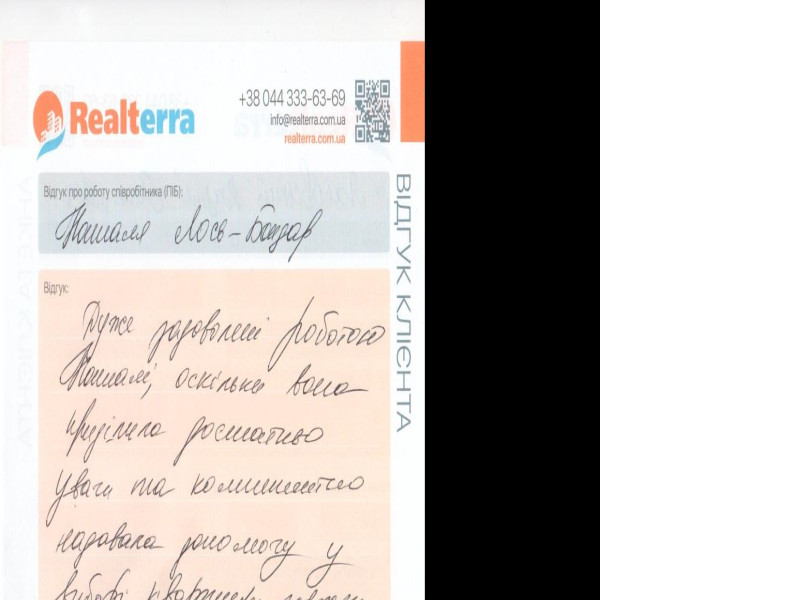 Realterra
+38 044 333-63-69
info@realterra.com.ua
realterra.com.ua
ВІДГУК КЛІЄНТА
Відгук про роботу співробітника (ПІБ):
Наталя Лось-Бондар
Відгук:
Дуже задоволені роботою
Наталі, оскільки вона
приділила достатньо
уваги та компетентно
надавала допомогу у
виборі квартири